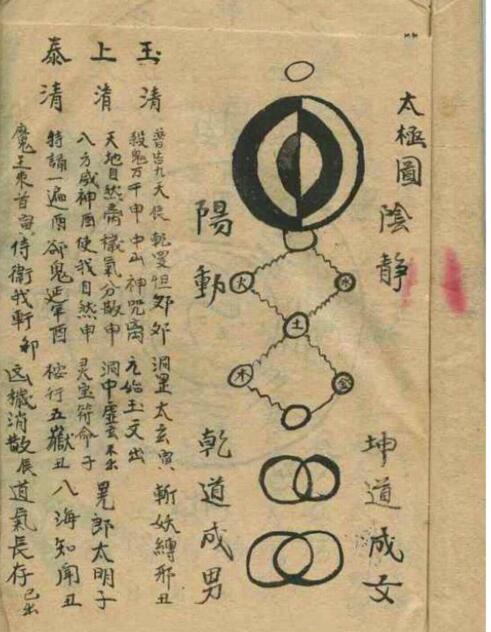 太極圖 陰靜
坤道成女
水
火
土
木
金
陽動
乾道成男
玉清
上清
泰清
普告九天 乾 怛 洞罡太玄寅 斬妖縛邪丑
殺鬼万千申 中山神咒 元始玉文出
天地自然 穢氣分散申 洞中虛玄 出 晃郎太明子
八方威神酉 使我自然申 灵宝符命子
誦一遍酉 卻鬼延年酉 桉行五嶽丑 八海知聞丑
魔王束首寅 侍衛我軒卯 凶穢消散辰 道氣長存 已出